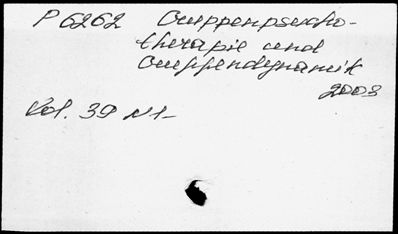 P 6262 Gruppenpsycho-
therapie und
Gruppendynamik
2003
Vol. 39 N 1-